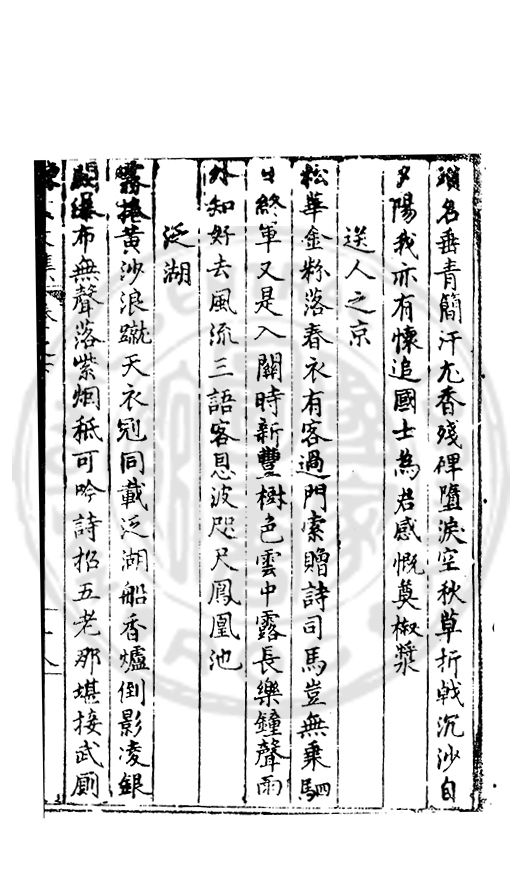 瑣名垂青簡汗尤香殘碑墮淚空秋草折戟沉沙自
夕陽我亦有懷追國士為君感慨奠椒漿
送人之京
松華金粉落春衣有客過門索贈詩司馬豈無乗駟
日終軍又是入關時新豐樹色雲中露長樂鐘聲雨
外知好去風流三語客恩波咫尺鳳凰池
泛湖
霧捲黃沙浪蹴天衣冠同載泛湖船香爐倒影凌銀
闕瀑布無聲落紫烟秪可吟詩招五老那堪接武厠